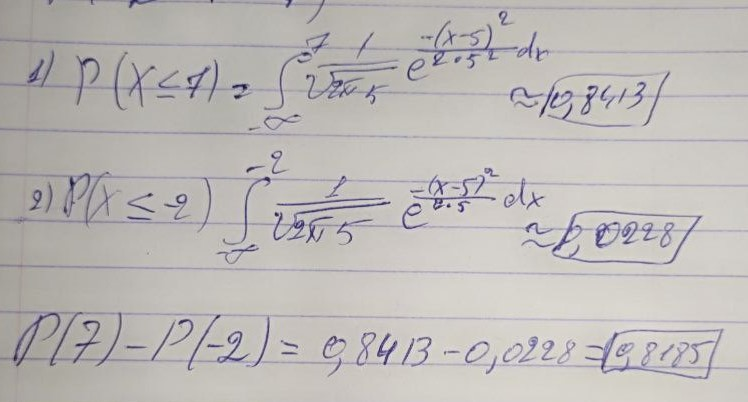 1) P(X ≤ 7) = ∫_{-∞}^{7} \frac{1}{\sqrt{2π} 5} e^{\frac{-(x-5)^2}{2·5^2}} dx ≈ 0,8413
2) P(X ≤ -2) ∫_{-∞}^{-2} \frac{1}{\sqrt{2π} 5} e^{\frac{-(x-5)^2}{2·5}} dx ≈ 0,0228
P(7) - P(-2) = 0,8413 - 0,0228 = 0,8185